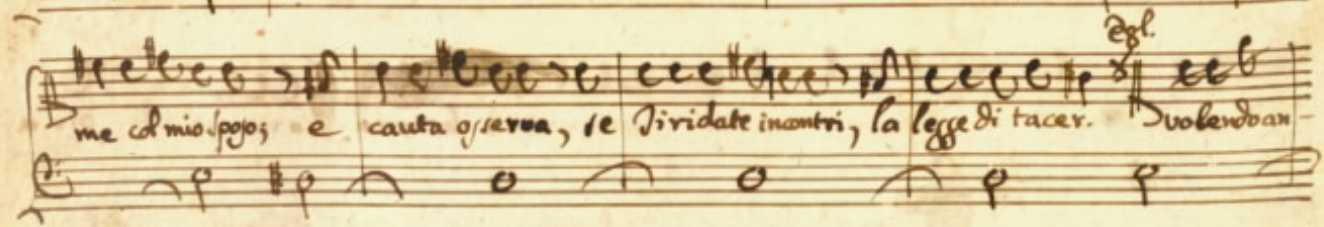 Egl.
me col mio sposo; e cauta osserva, se Tiridate incontri, la legge di tacer. volendo an-